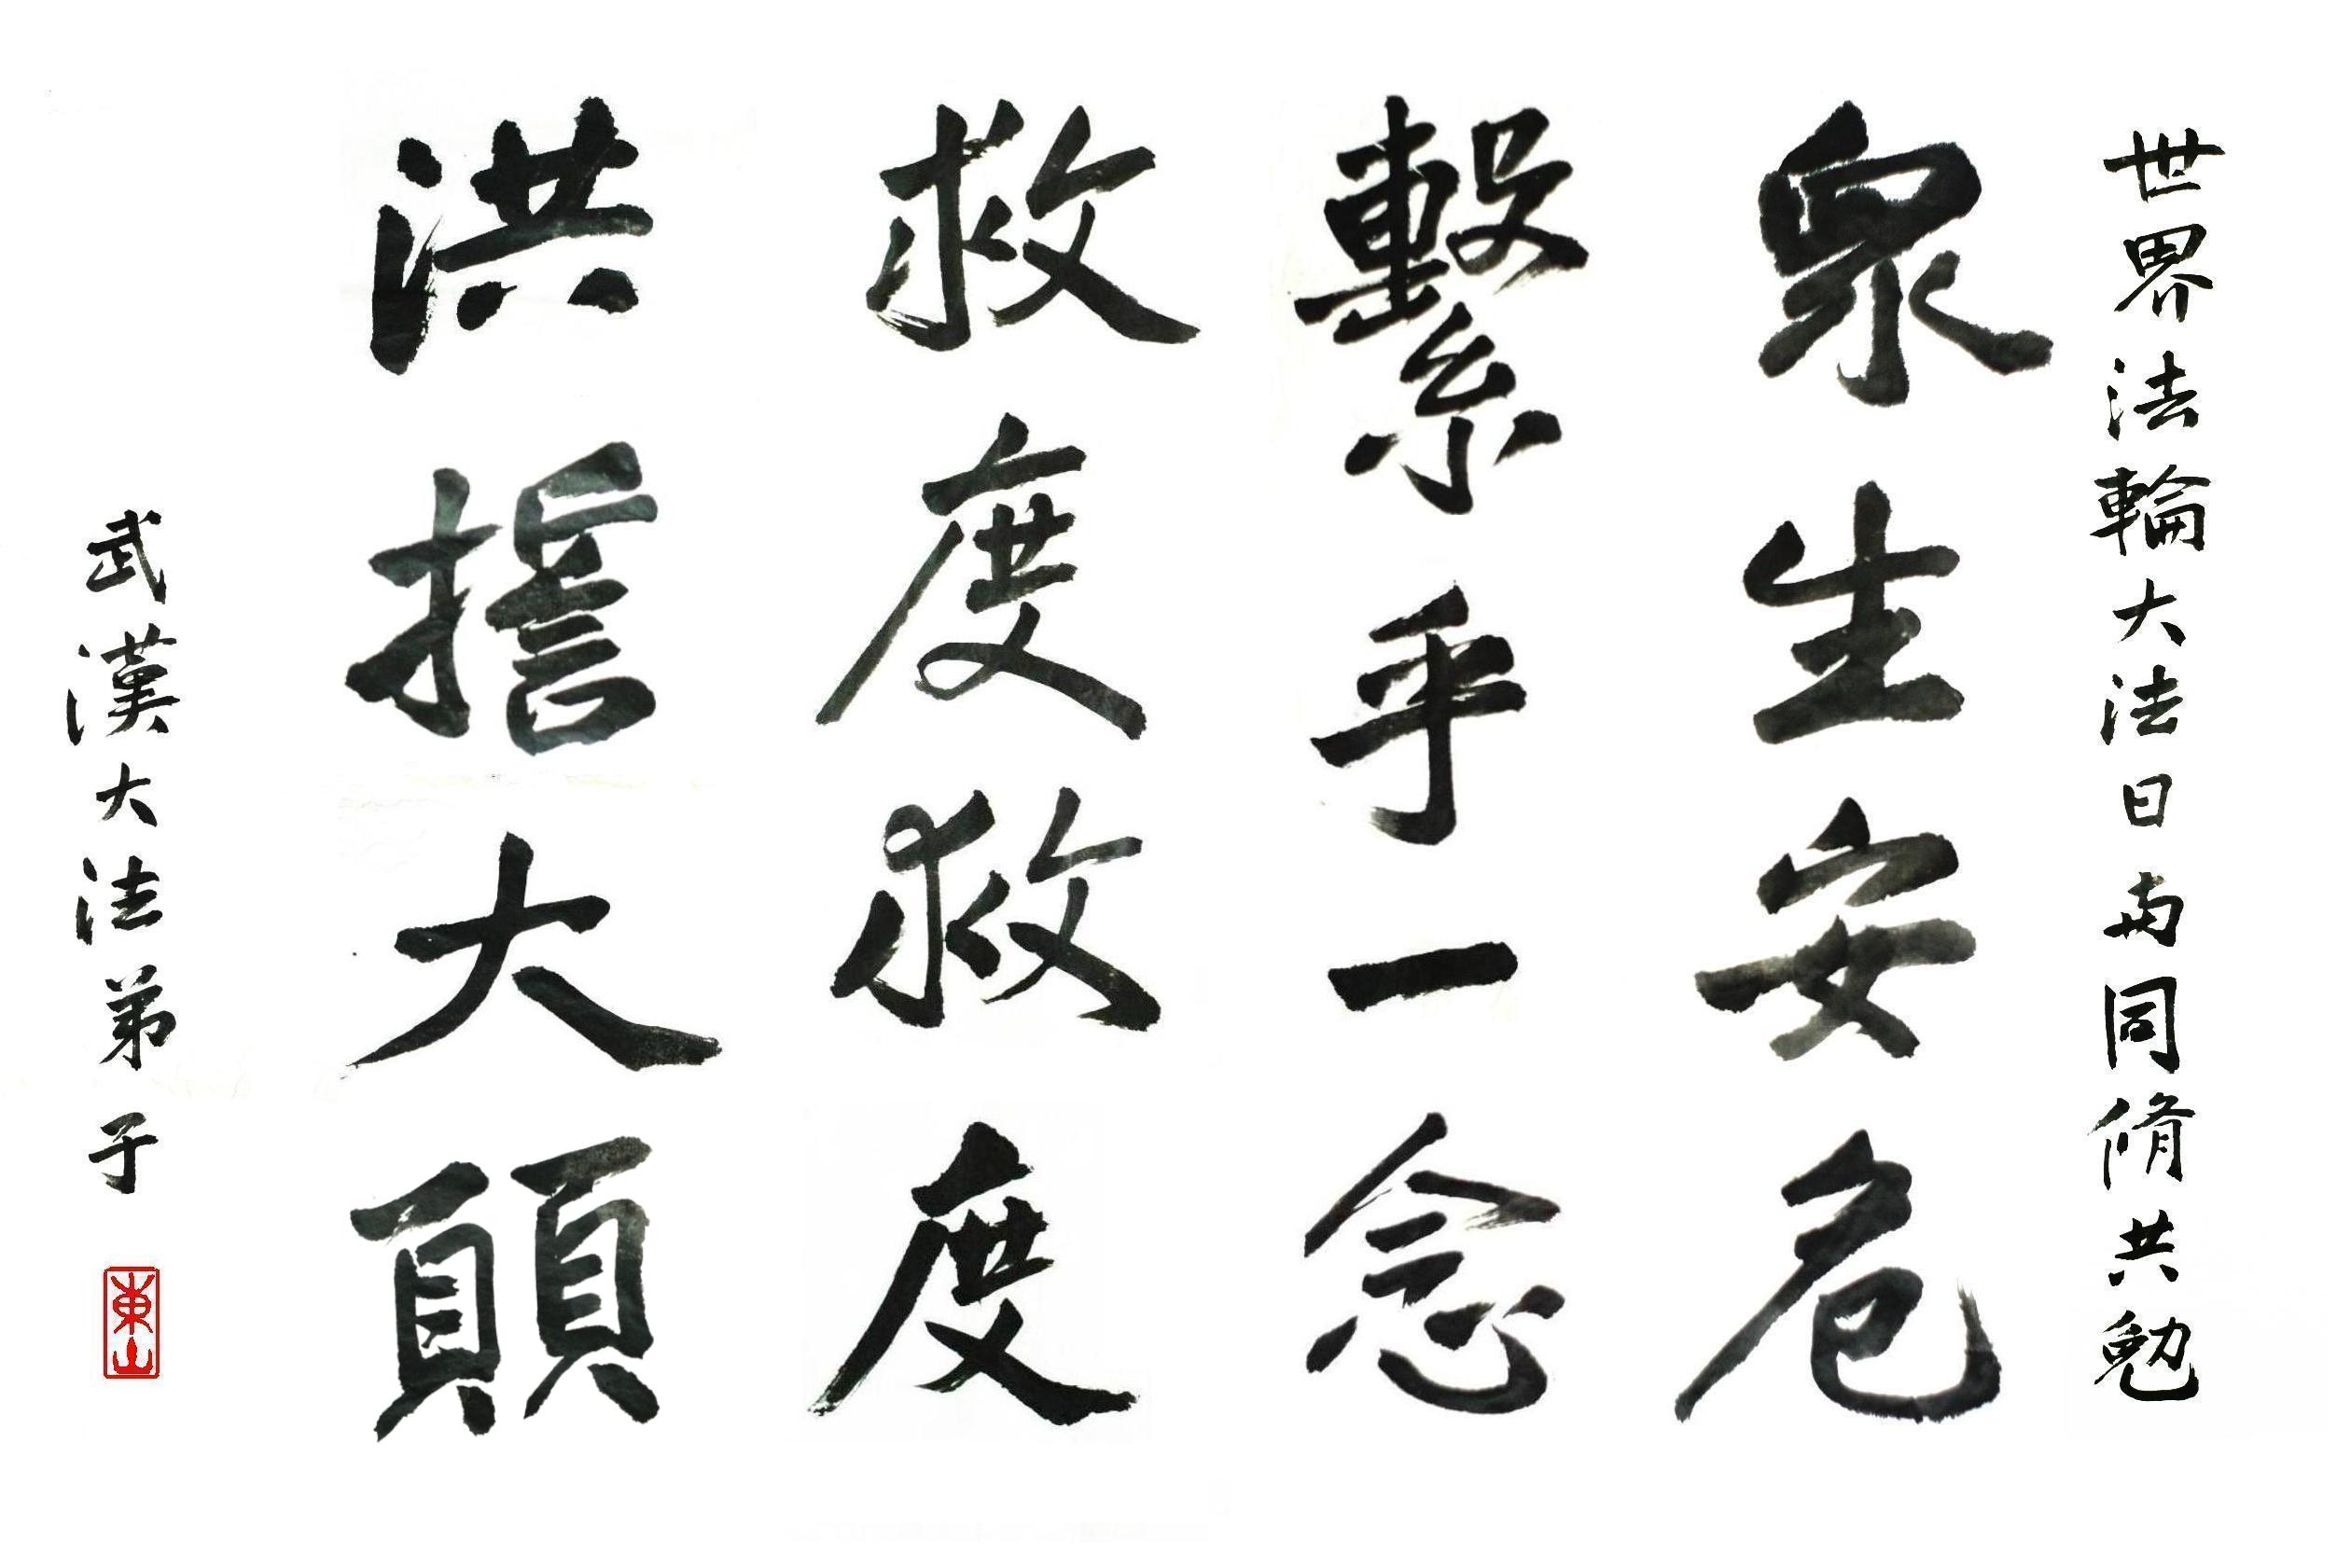 世界法輪大法日與同修共勉
眾生安危
繫乎一念
救度救度
洪擔大願
武漢大法弟子
東山